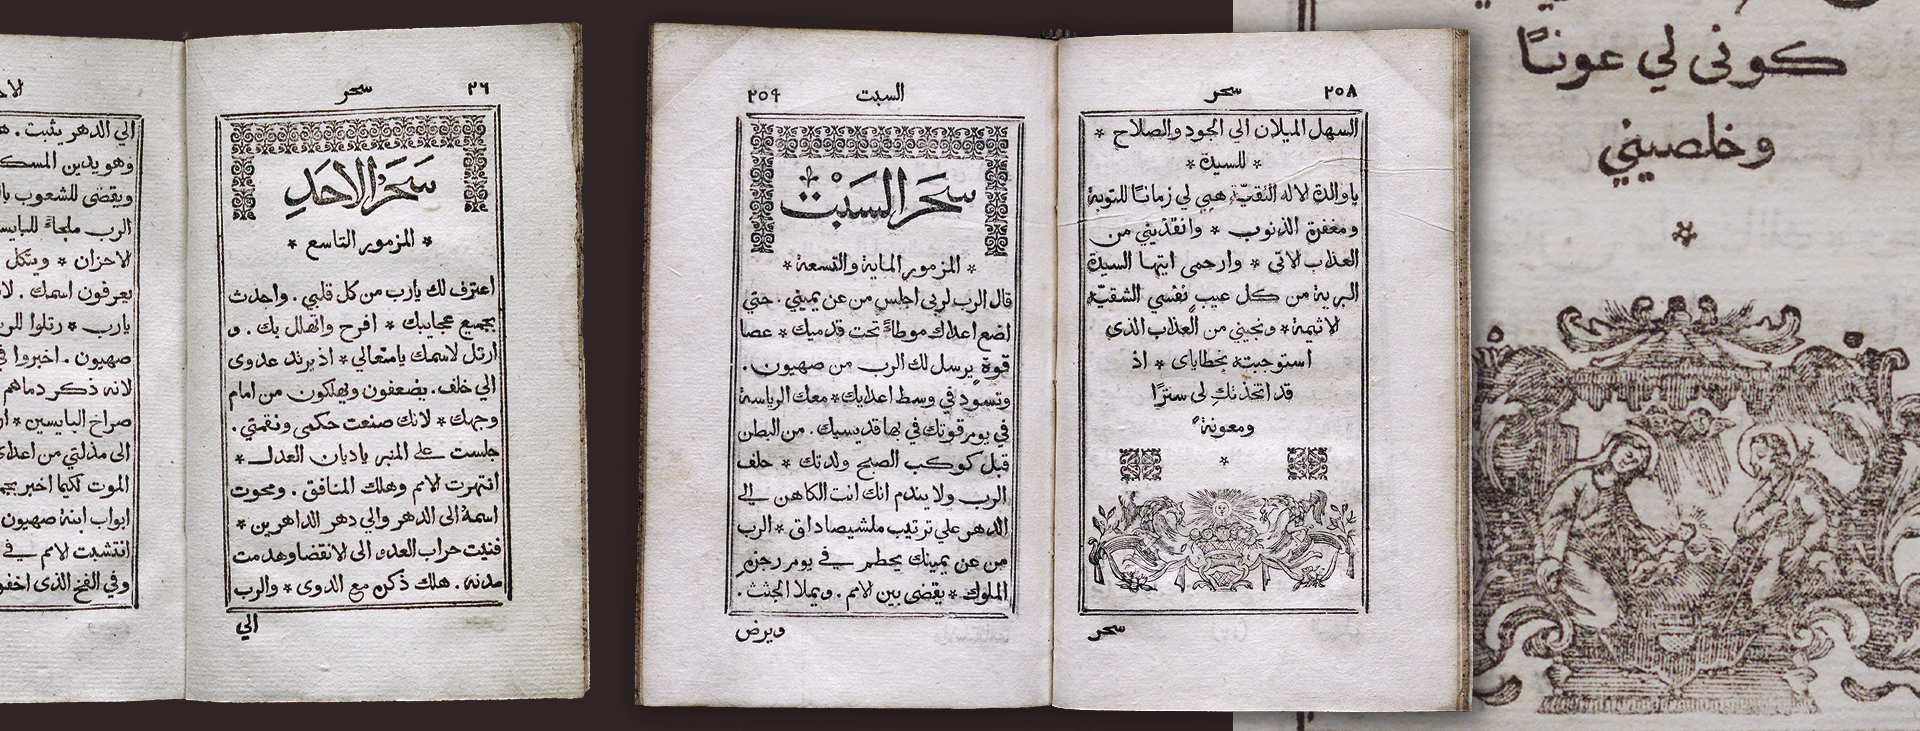 ٢٦
سحر
سَحَرُ الاحَدِ
* المزمور التاسع *
اعترف لك يارب من كل قلبي . واحدث
بجميع عجايبك * افرح واتهلل بك . و
ارتل لاسمك يامتعالي * اذ يرتد عدوى
الي خلف . يضعفون ويهلكون من امام
وجهك * لانك صنعت حكمى ونقمتي .
جلست على المنبر ياديان العدل *
انتهرت الامم وهلك المنافق . ومحوت
اسمهُ الى الدهر والي دهر الداهرين *
فنيت حراب العدو الى الانقضا وهدمت
مدنه . هلك ذكره مع الدوى * والرب
الي
الي الدهر يثبت .
وهو يدين المسك
ويقضى للشعوب
الرب ملجاءً للبايس
الاحزان * ويتكل
يعرفون اسمك .
يارب * رتلوا للر
صهيون . اخبروا
لانه ذكر دماهم
صراخ البايسين *
الى مذلتي من اعدا
الموت لكيما اخبر
ابواب ابنة صهيون
انتشبت الامم في
وفي الفخ الذى اخفو
٢٥٨
سحر
السهل الميلان الي الجود والصلاح *
* للسيدة *
ياوالدة الاله النقيّة هبي لي زمانًا للتوبة
ومغفرة الذنوب * وانقذيني من
العذاب الاتى * وارحمى ايتها السيدة
البرية من كل عيب نفسي الشقيّة
الاثيمة * ونجيني من العذاب الذى
استوجبته بخطاياى * اذ
قد اتخذتكِ لى سترًا
ومعونةً
*
سحر
السبت
٢٥٩
سَحَرُ السَبْت
* المزمور الماية والتسعة *
قال الرب لربى اجلس من عن يميني . حتي
اضع اعداك موطاءً تحت قدميك * عصا
قوة يرسل لك الرب من صهيون .
وتسود في وسط اعدايك * معك الرياسة
في يوم قوتك في بها قديسيك . من البطن
قبل كوكب الصبح ولدتك * حلف
الرب ولا يندم انك انت الكاهن الى
الدهر على ترتيب ملشيصاداق * الرب
من عن يمينك يحطم في يوم رجزه
الملوك * يقضى بين الامم . ويملا الجثث .
ويرض
كونى لي عونًا
وخلصيني
*